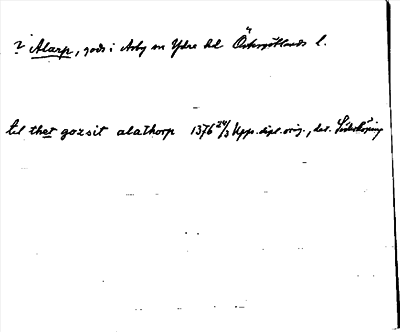 ? Alarp, gods i Asby sn Ydre hd Östergötlands l.
til thet gozsit alathorp 1376 24/3 Upp. dipl. orig., dat. Söderköping